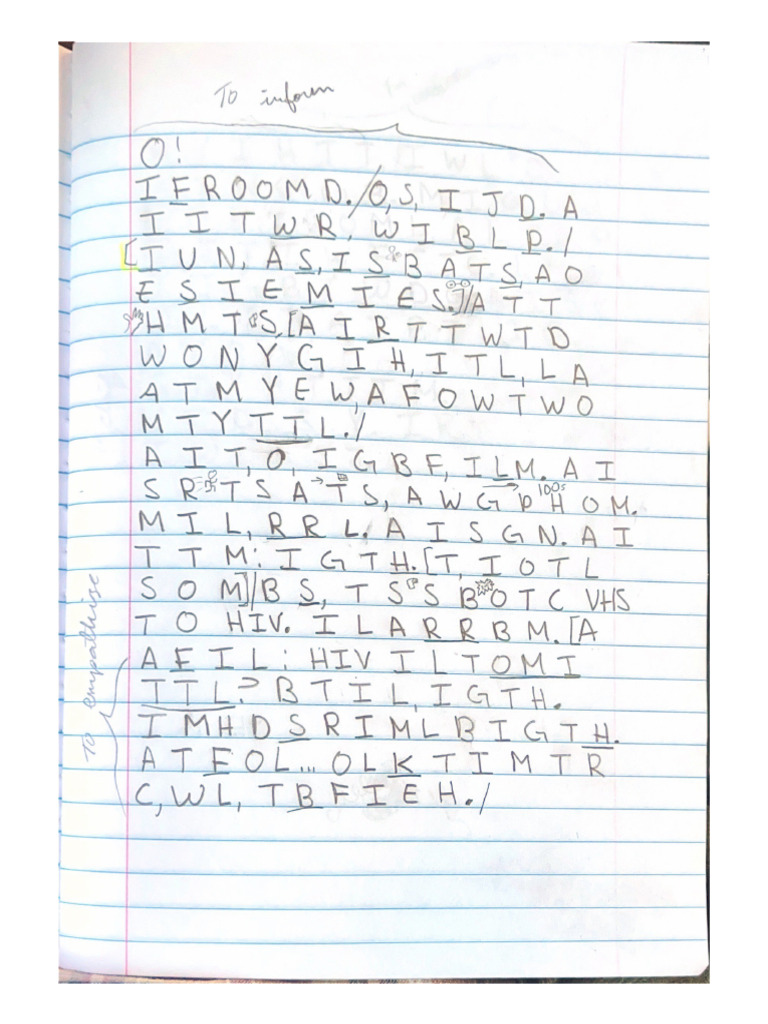 To inform
O!
I F R O O M D. / O, S, I J D. A
I I T W R, W I B L P. /
[I U N, A S, I S B A T S, A O
E S I E M I E S.] / A T T
H M T S. [A I R T T W T D
W O N Y G I H, I T L, L A
A T M Y E W, A F O W T W O
M T Y T T L. /
A I T, O, I G B F, I L M. A I
S R T S A → T S, A W G P 100s H O M.
M I L, R R L. A I S G N. A I
T T M: I G T H. [T, I O T L
S O M] / B S, T S S B O T C VHS
T O HIV. I L A R R B M. [A
A F I L: HIV I L T O M I
T T L? B T I L, I G T H.
I M H D S R I M L B I G T H.
A T F O L... O L K T I M T R
C, W L, T B F I E H. /
To empathise